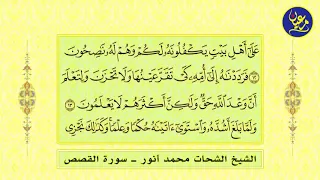 عَلَىٰٓ أَهۡلِ بَيۡتٖ يَكۡفُلُونَهُۥ لَكُمۡ وَهُمۡ لَهُۥ نَٰصِحُونَ
١٢ فَرَدَدۡنَٰهُ إِلَىٰٓ أُمِّهِۦ كَيۡ تَقَرَّ عَيۡنُهَا وَلَا تَحۡزَنَ وَلِتَعۡلَمَ
أَنَّ وَعۡدَ ٱللَّهِ حَقّٞ وَلَٰكِنَّ أَكۡثَرَهُمۡ لَا يَعۡلَمُونَ ١٣
وَلَمَّا بَلَغَ أَشُدَّهُۥ وَٱسۡتَوَىٰٓ ءَاتَيۡنَٰهُ حُكۡمٗا وَعِلۡمٗاۚ وَكَذَٰلِكَ نَجۡزِي
الشيخ الشحات محمد أنور - سورة القصص